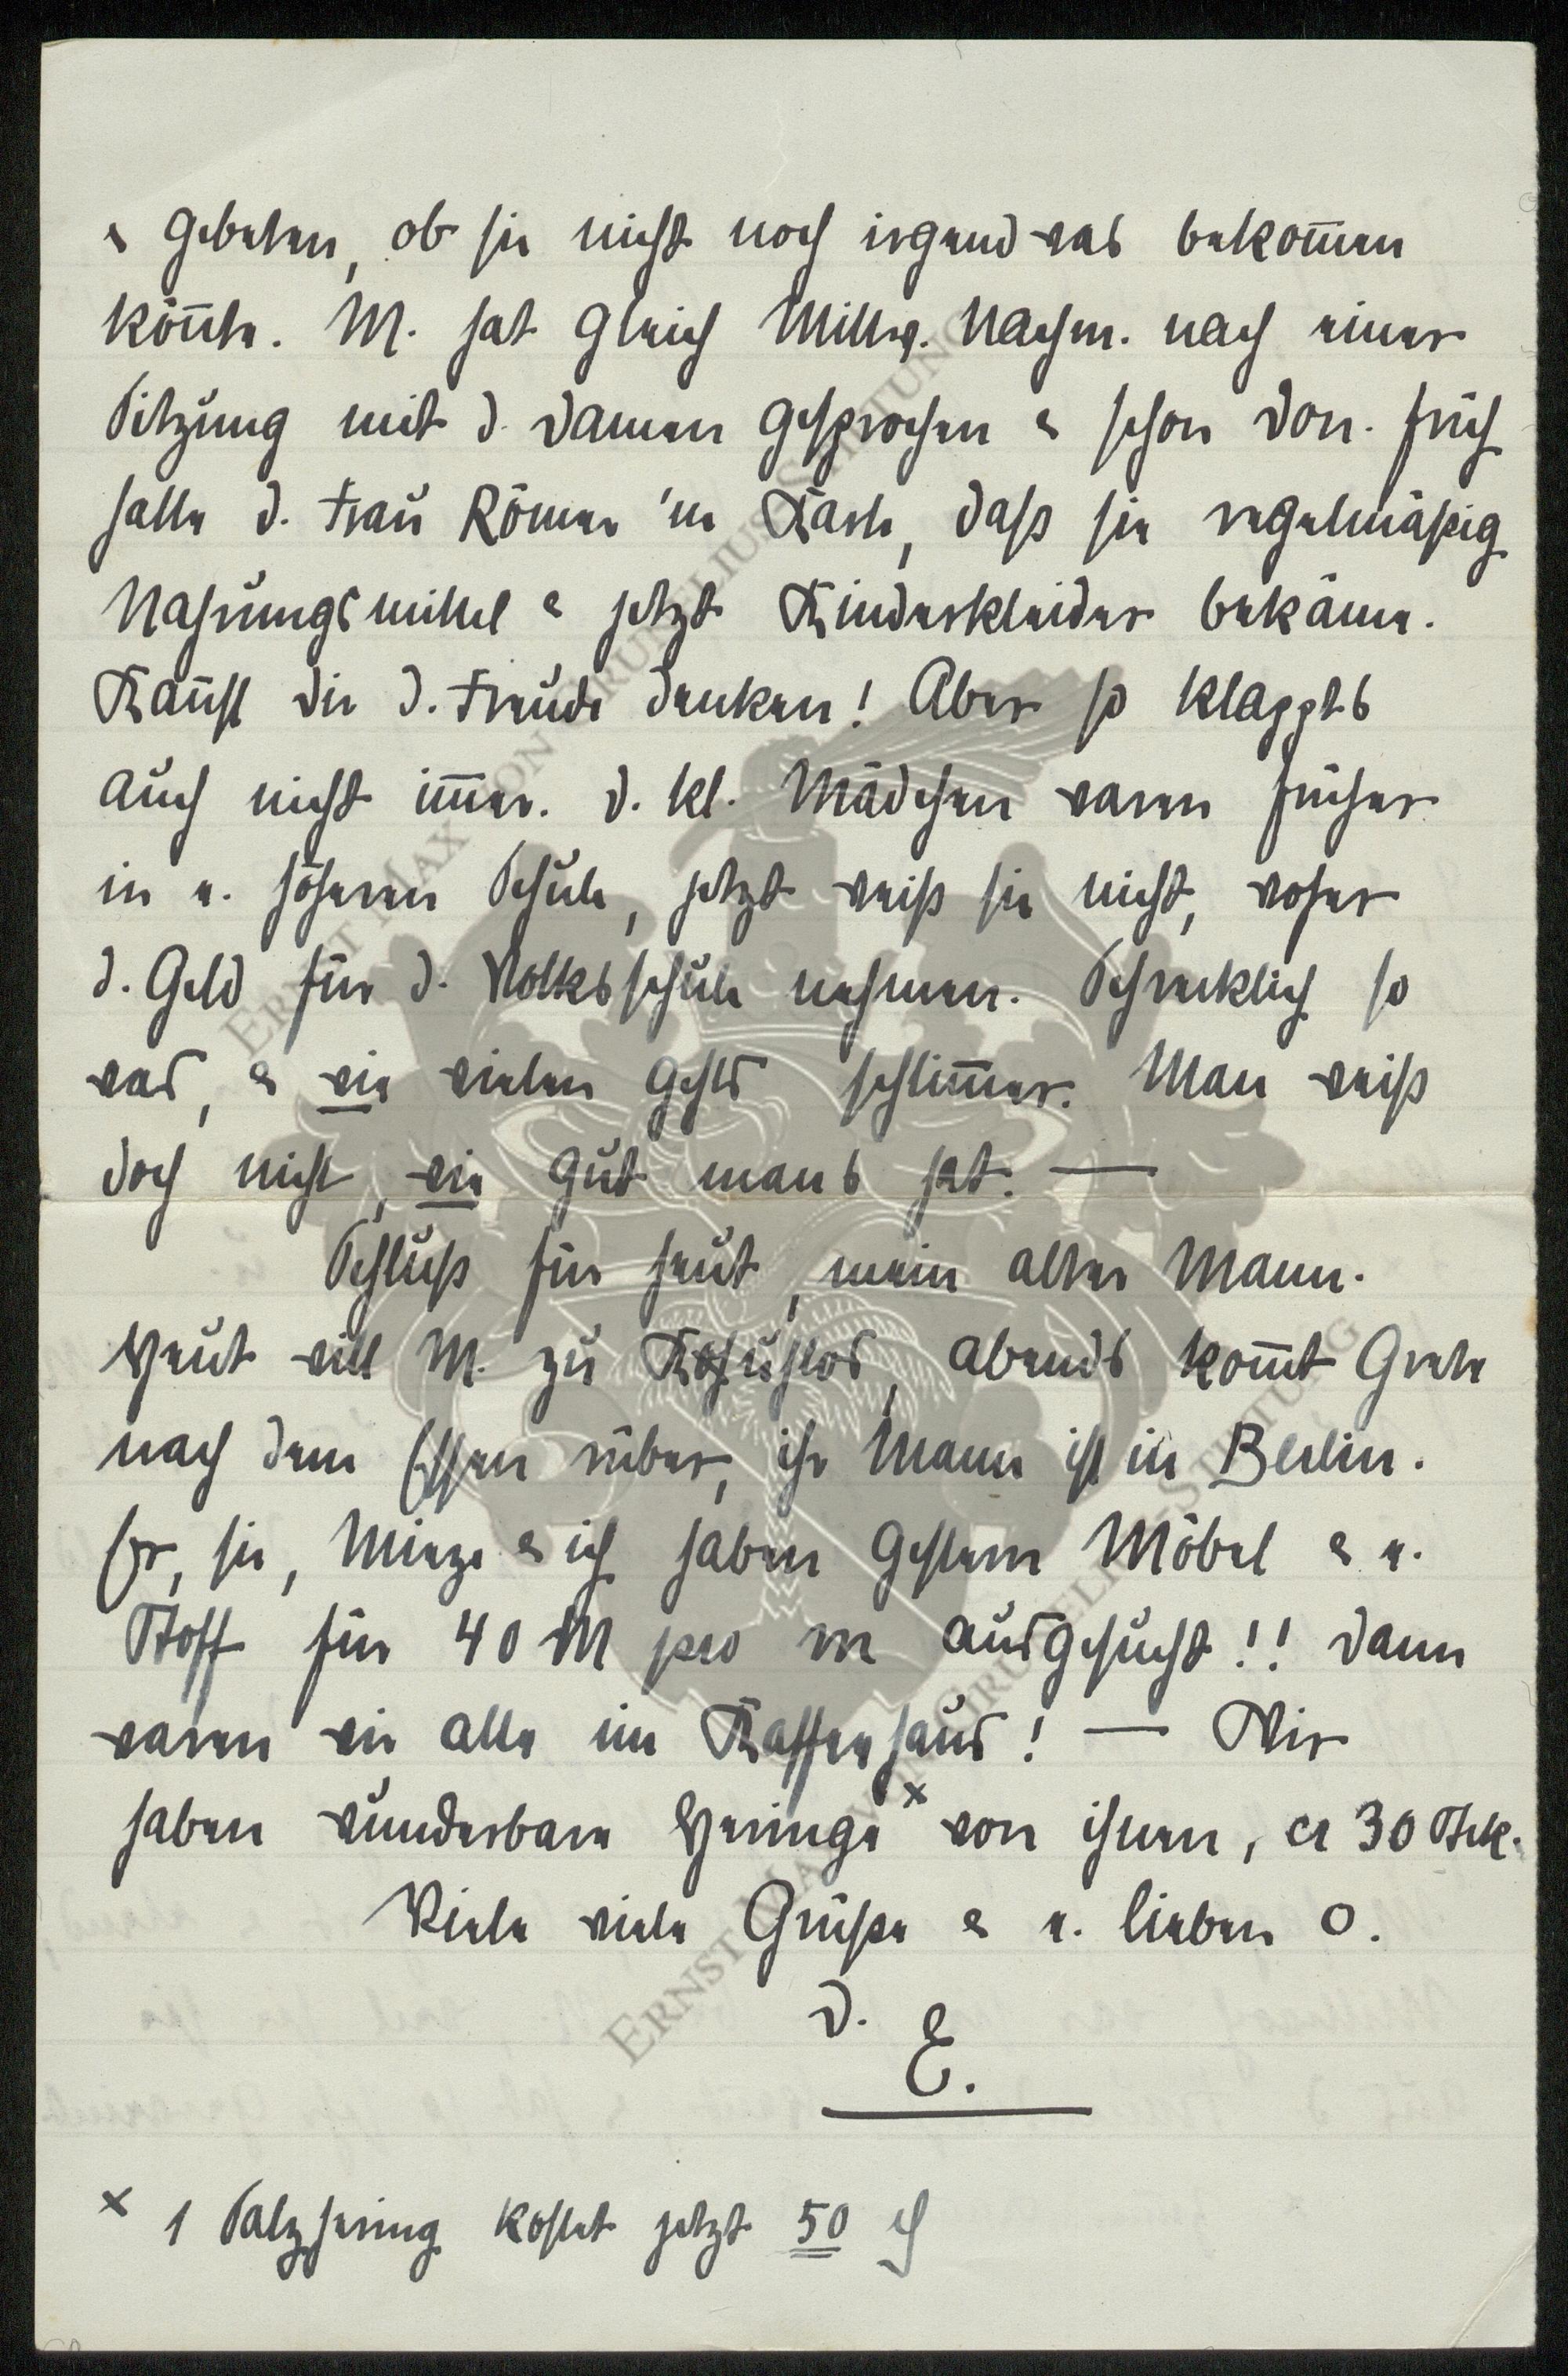 & gebeten, ob sie nicht noch irgend was bekom̅en
kön̅te. M. hat gleich Mittw. Nachm. nach einer
Sitzung mit d. Damen gesprochen & schon Don. früh
hatte d. Frau Römer 'ne Karte, daß sie regelmäßig
Nahrungsmittel & jetzt Kinderkleider bekäme.
Kan̅st dir d. Freude denken! Aber so klappts
auch nicht im̅er. D. kl. Mädchen waren früher
in e. höheren Schule, jetzt weiß sie nicht, woher
d. Geld für d. Volksschule nehmen. Schrecklich so
was, & wie vielen gehts schlim̅er. Man weiß
doch nicht, wie gut mans hat. —
Schluß für heut, mein alter Mann.
Heut will M. zu, abends kom̅t Grete
nach dem Essen rüber, ihr Mann ist in Berlin.
Er, sie, Mieze & ich haben gestern Möbel & e.
Stoff für 40 M pro m ausgesucht!! Dann
waren wir alle im Kaffeehaus! — Wir
haben wunderbare Heringe x von ihnen, ca 30 Stck.
Viele viele Grüße & e. lieben O.
D. E.
x 1 Salzhering kostet jetzt 50 ₰
ERNST MAX VON GRUNELIUS-STIFTUNG
ERNST MAX VON GRUNELIUS-STIFTUNG